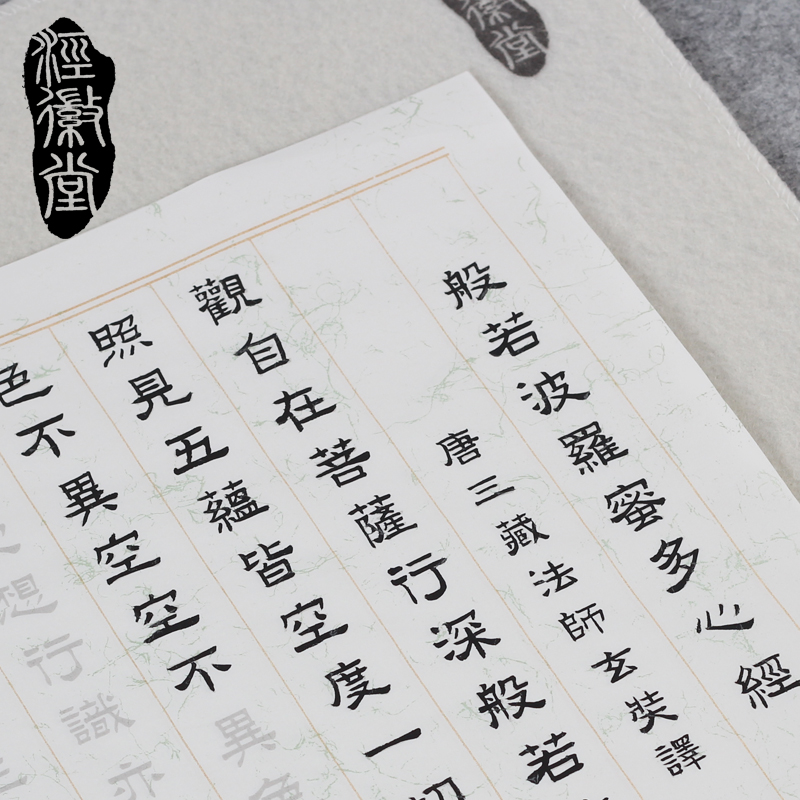 涇徽堂
徽堂
般若波羅蜜多心經
唐三藏法師玄奘譯
觀自在菩薩行深般若
照見五蘊皆空度一切
色不異空空不異色
想行識亦